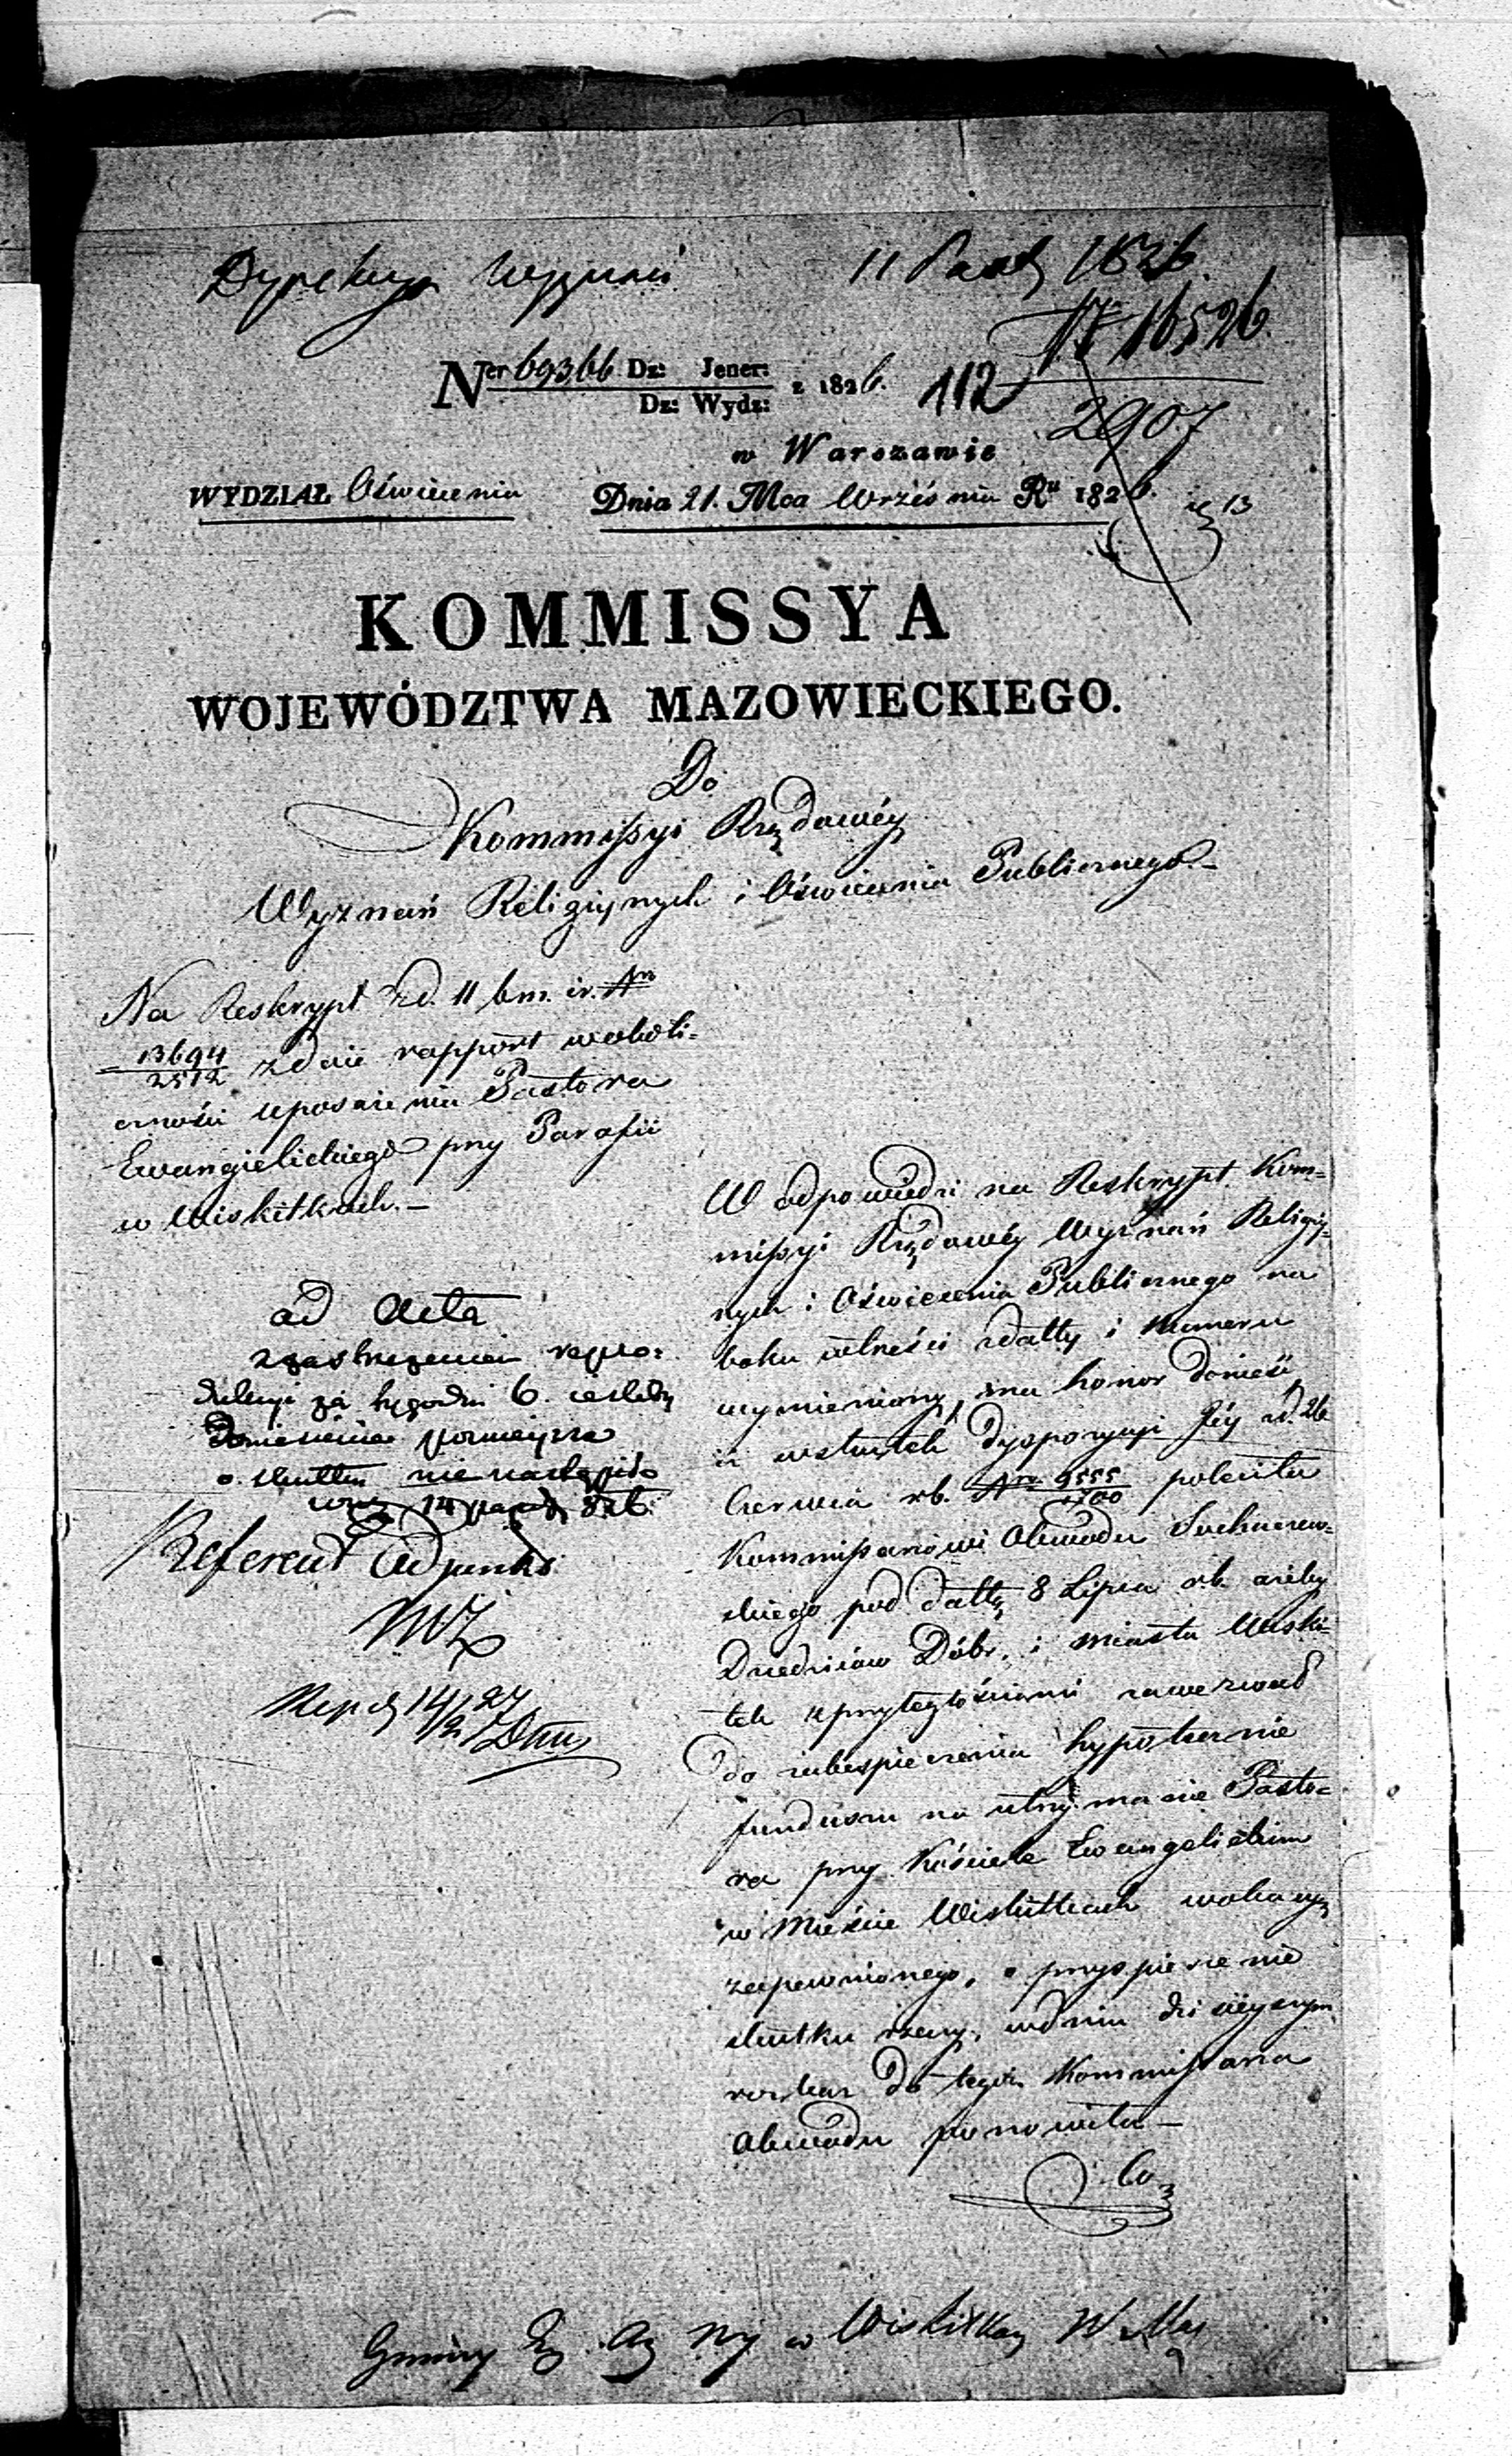 Dyrekcya Wyznań
11 Paźd 1826.
17 16526
2907
Ner 69366 Dz: Jener: z 1826.
Dz: Wydz:
112
w Warszawie
WYDZIAŁ Oświecenia
Dnia 21. Mca Września Ru 1826.
13
KOMMISSYA
WOJEWÓDZTWA MAZOWIECKIEGO.
Do
Kommissyi Rządowéy
Wyznań Religiynych i Oświecenia Publicznego.-
Na Reskrypt zd. 11 bm. ir. Nro
13694
2572 zdaie rapport wokoli=
czności uposażenia Pastora
Ewangielickiego przy Parafii
w Wiskitkach.-
ad Acta
z zastrzeżeniem repro=
dukcyi za tygodni 6. ieśliby
doniesienie
o skutku nie nastąpiło
14 826
Referent Adjunkt
14/2 27
W odpowiedzi na Reskrypt Kom=
missyi Rządowéy Wyznań Religiy=
nych i Oświecenia Publicznego na
boku co do treści datty i Numeru
wymieniony, ma honor donieść
iż wskutek dyspozycyi Jéy zd. 26
Czerwca rb. Nro 9555
1700 poleciła
Kommissarzowi Obwodu Sochaczew=
skiego pod dattą 8 Lipca rb. ażeby
Dziedziców Dóbr i miasta Wiski=
tek z przyległościami zawezwał
do zabespieczenia hypotecznie
funduszu na utrzymanie Pasto=
ra przy Kościele Ewangelickim
w Mieście Wiskitkach
zapewnionego, o przyspieszenie
skutku rzeczy, w dniu dzisieyszym
rozkaz do tegoż Kommissarza
Obwodu ponowiła-
Co
Gminy w Wiskitkach W Maz